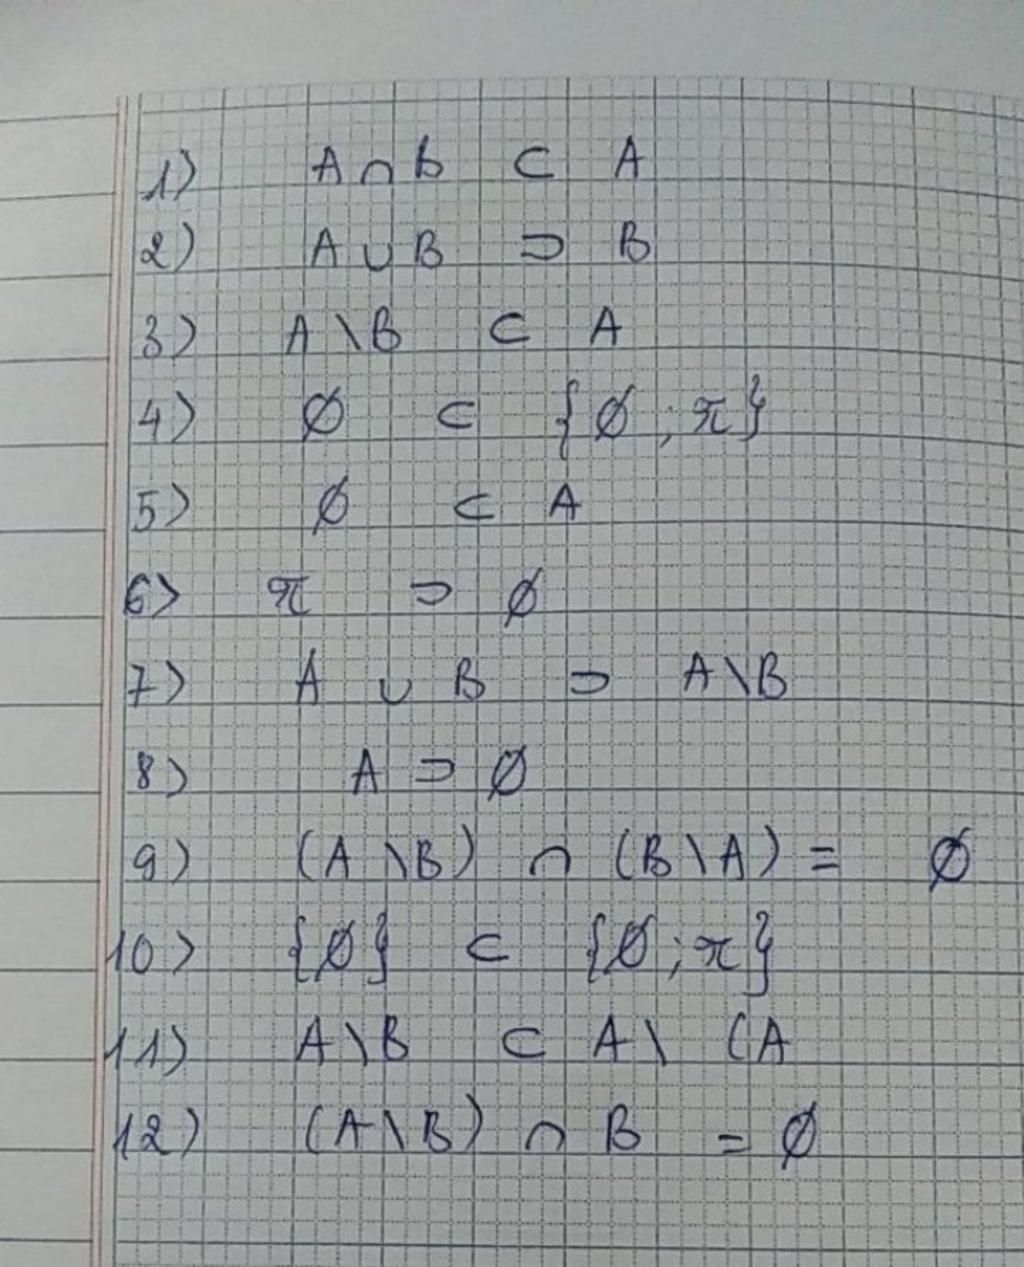 1) A ∩ B ⊂ A
2) A ∪ B ⊃ B
3) A \ B ⊂ A
4) ∅ ⊂ {∅ ; π}
5) ∅ ⊂ A
6) π ⊃ ∅
7) A ∪ B ⊃ A \ B
8) A ⊃ ∅
9) (A \ B) ∩ (B \ A) = ∅
10) {∅} ⊂ {∅ ; π}
11) A \ B ⊂ A \ (A
12) (A \ B) ∩ B = ∅